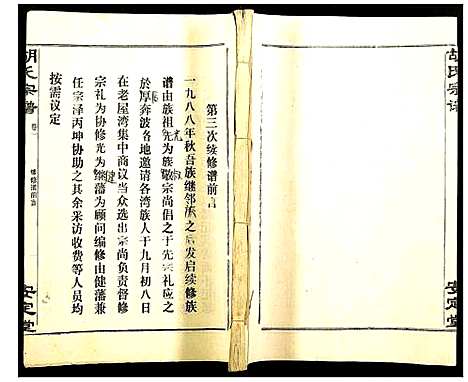 胡氏宗谱
安定堂
第三次续修谱前言
一九八八年秋吾族继邻族之后发启续修族
谱由族祖先为族敬宗尚侣之于先宗礼应之
於厚奔波各地邀请各湾族人于九月初八日
在老屋湾集中商议当众选出宗尚负责督修
宗礼为协修光为藩为顾问编修由健藩兼
任宗泽丙坤协助之其余采访收费等人员均
按需议定
胡氏宗谱
卷
续修谱前言
安定堂